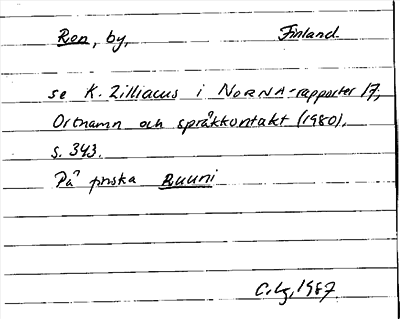 Ren, by, Finland.
se K. Zilliacus i NORNA-rapporter 17,
Ortnamn och språkkontakt (1980),
s. 343.
På finska Ruuni
1987